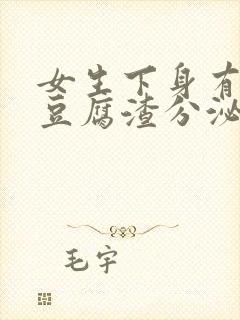 女生下身有
豆腐渣分泌
毛宇